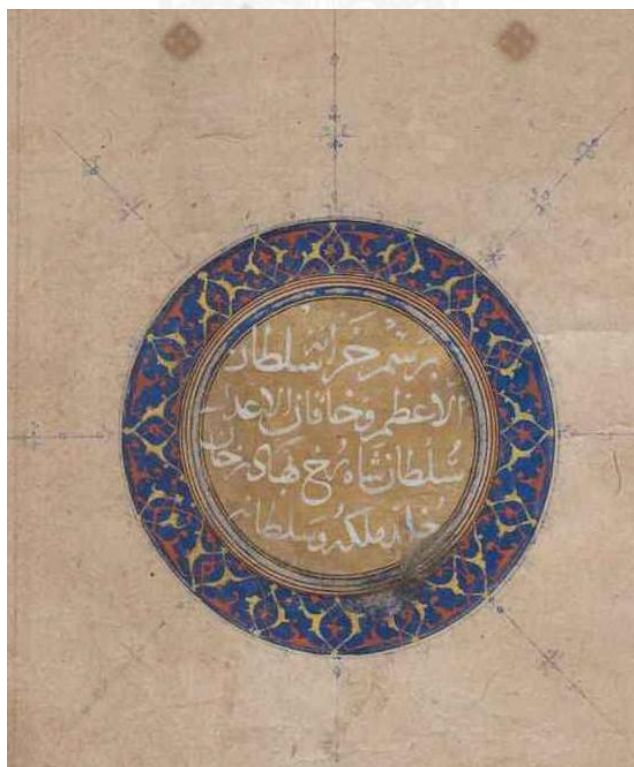 برسم خزانة السلطان
الاعظم وخاقان الاعدل
سلطان شاه رخ بهادر خان
خلد ملكه وسلطانه